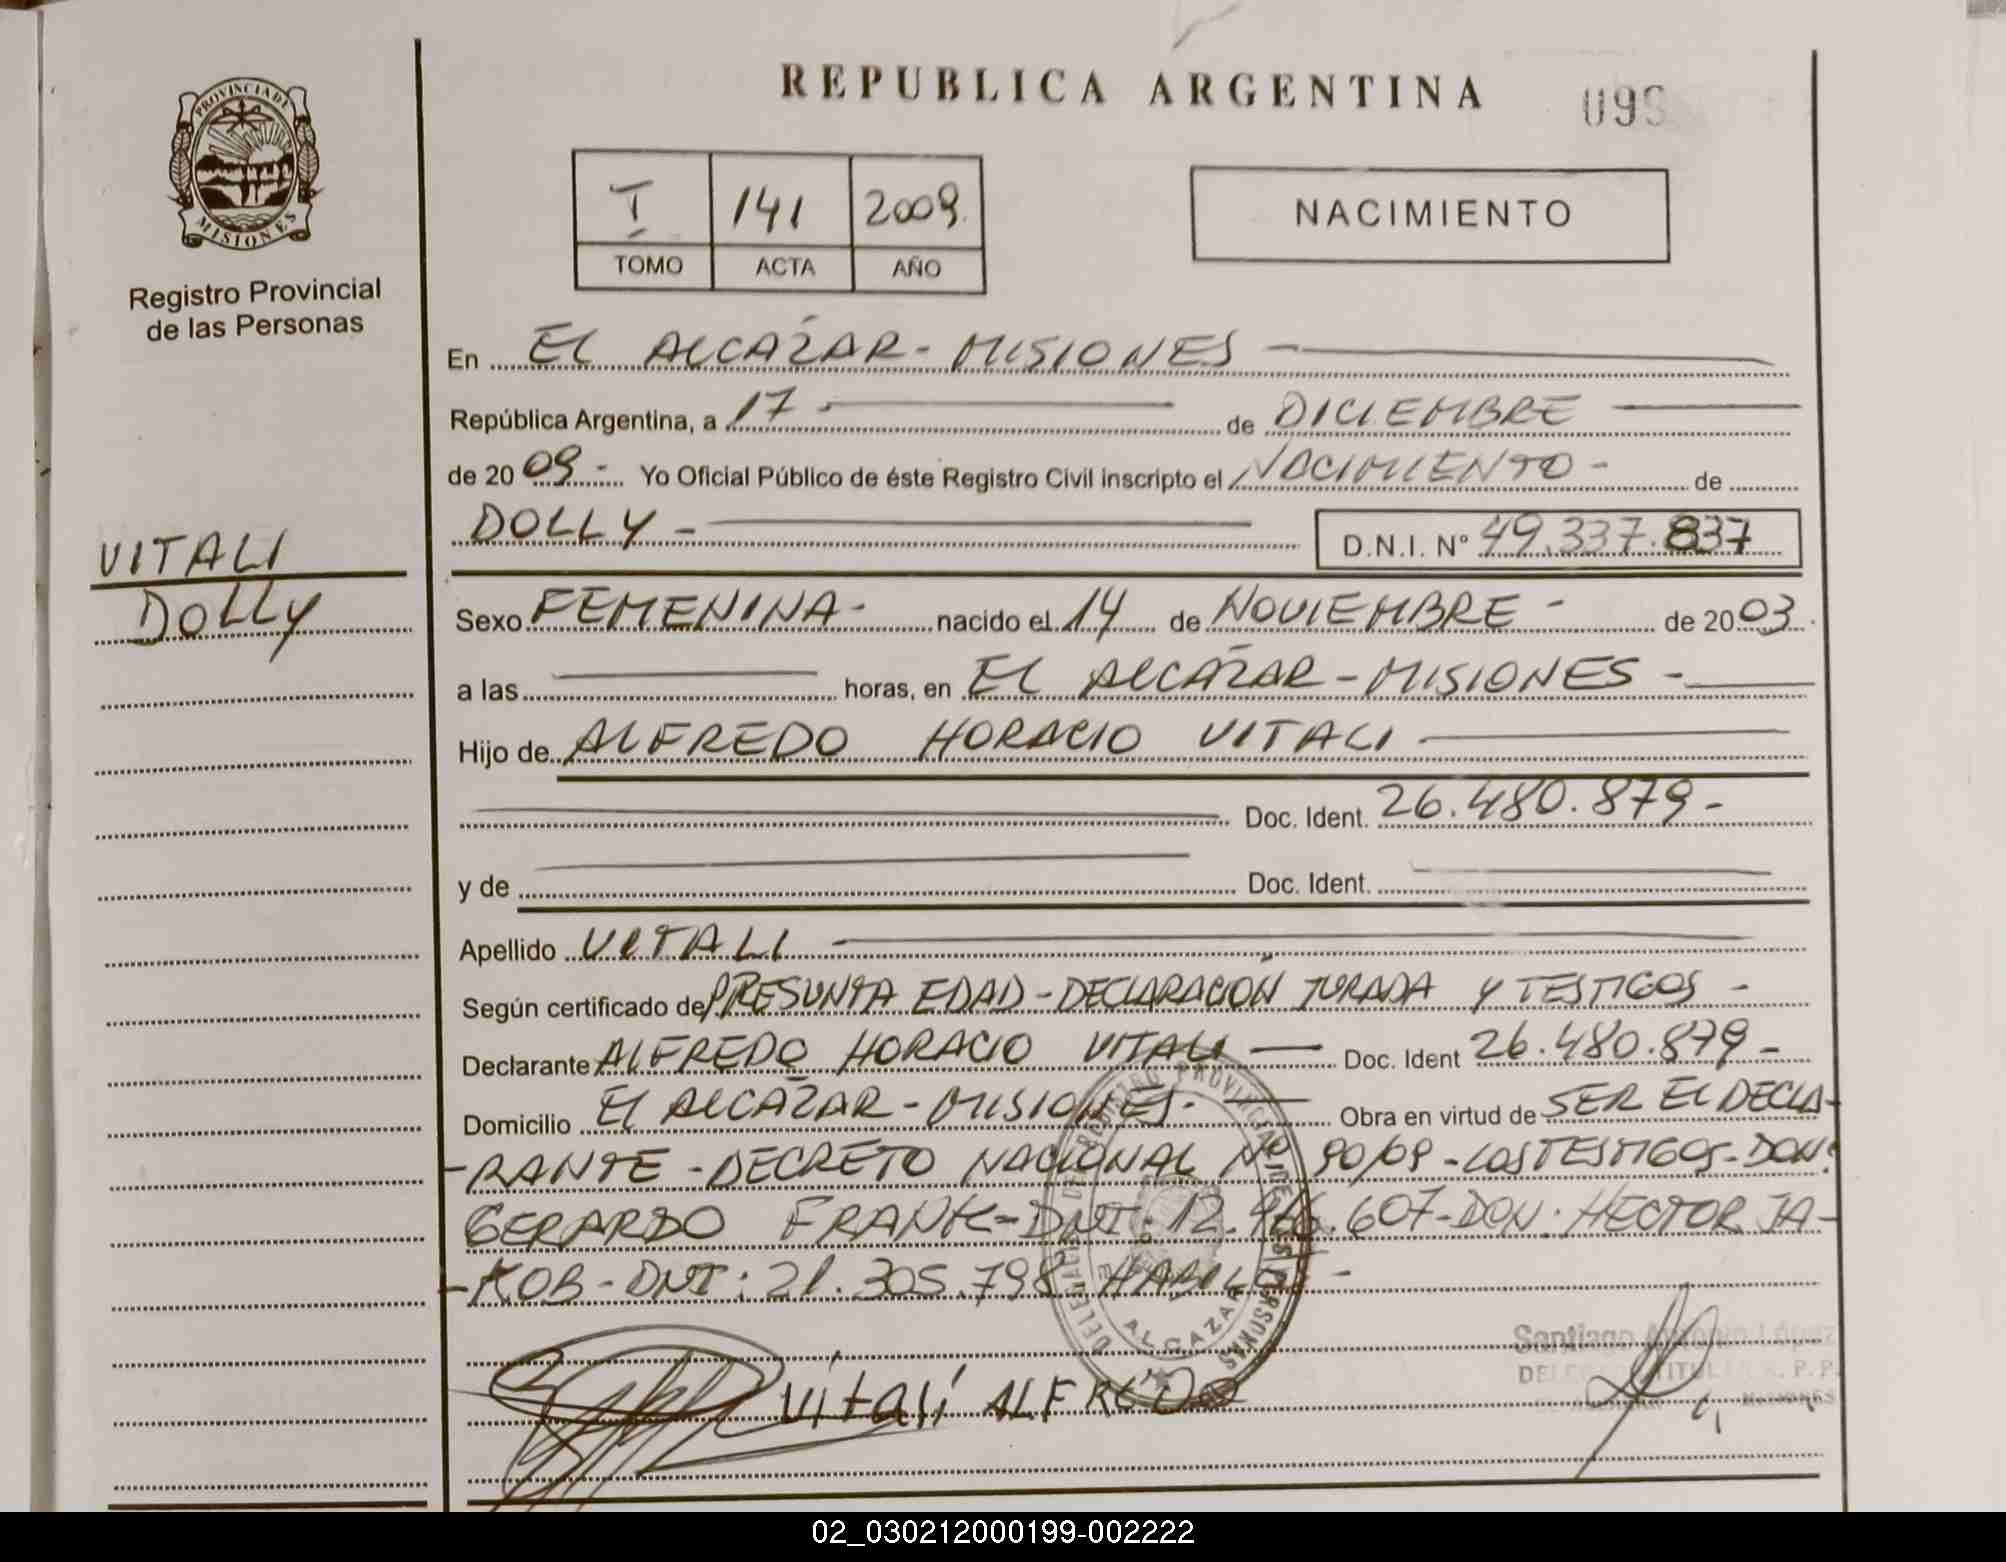 REPUBLICA ARGENTINA
099
PROVINCIA DE MISIONES
Registro Provincial
de las Personas
I 141 2009.
TOMO ACTA AÑO
NACIMIENTO
En EL ALCAZAR - MISIONES
República Argentina, a 17 - de DICIEMBRE
de 20 09 - Yo Oficial Público de éste Registro Civil inscripto el NACIMIENTO - de
DOLLY - D.N.I. Nº 49.337.837
VITALI
DOLLY
Sexo FEMENINA - nacido el 14 de NOVIEMBRE - de 20 03
a las horas, en EL ALCAZAR - MISIONES -
Hijo de ALFREDO HORACIO VITALI
Doc. Ident. 26.480.879 -
y de Doc. Ident.
Apellido VITALI
Según certificado de PRESUNTA EDAD - DECLARACIÓN JURADA Y TESTIGOS -
Declarante ALFREDO HORACIO VITALI Doc. Ident 26.480.879 -
Domicilio EL ALCAZAR - MISIONES - Obra en virtud de SER EL DECLA-
-RANTE - DECRETO NACIONAL Nº 90/09 - LOS TESTIGOS - DON:
GERARDO FRANK - DNI: 12.966.607 - DON: HECTOR JA-
-KOB - DNI: 21.305.798 -
DELEGACION REGISTRO PROVINCIAL DE LAS PERSONAS
EL ALCAZAR
Vitali ALFREDO
Santiago Antonio López
02_030212000199-002222